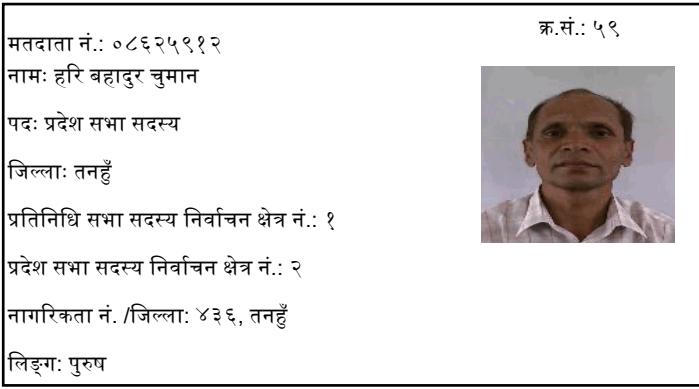 क्र.सं.: ५९
मतदाता नं.: ०८६२५९१२
नामः हरि बहादुर चुमान
पदः प्रदेश सभा सदस्य
जिल्लाः तनहुँ
प्रतिनिधि सभा सदस्य निर्वाचन क्षेत्र नं.: १
प्रदेश सभा सदस्य निर्वाचन क्षेत्र नं.: २
नागरिकता नं. /जिल्ला: ४३६, तनहुँ
लिङ्ग: पुरुष